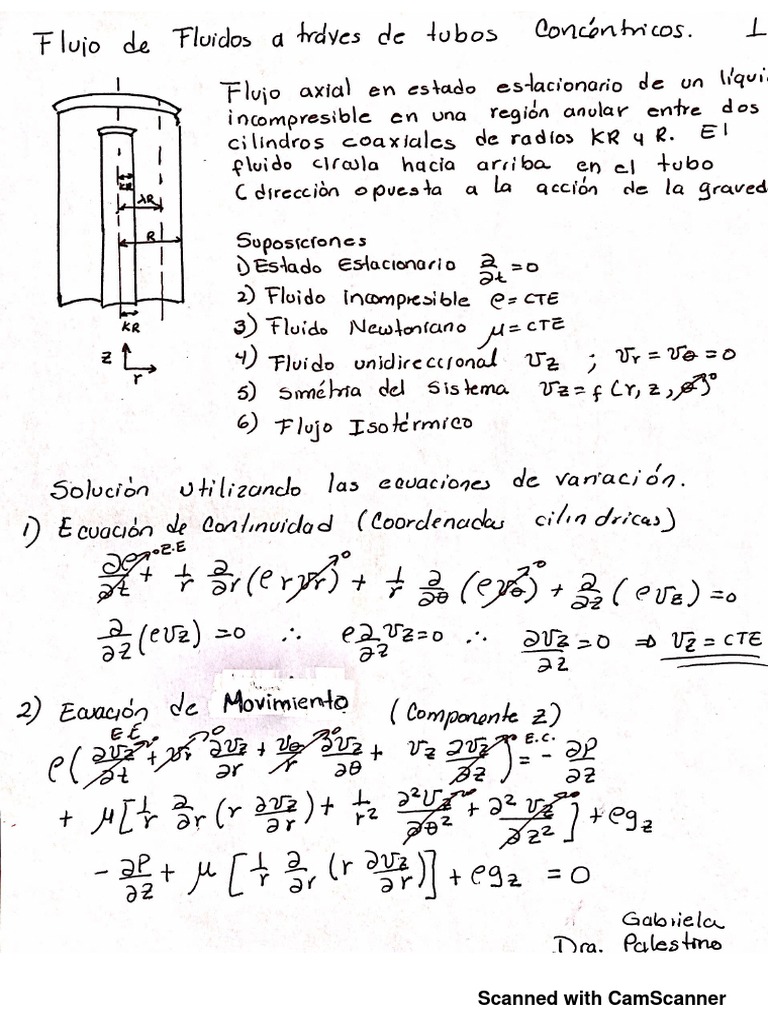 Flujo de Fluidos a través de tubos Concéntricos. 1
Flujo axial en estado estacionario de un líqui
incompresible en una región anular entre dos
cilindros coaxiales de radios KR y R. El
fluido circula hacia arriba en el tubo
(dirección opuesta a la acción de la graved
λR
R
KR
z
r
Suposiciones
1) Estado Estacionario ∂/∂t = 0
2) Fluido incompresible ρ = CTE
3) Fluido Newtoniano μ = CTE
4) Fluido unidireccional Vz ; Vr = Vθ = 0
5) Simétria del Sistema Vz = f (r, z, θ)⁰
6) Flujo Isotérmico
Solución utilizando las ecuaciones de variación.
1) Ecuación de Continuidad (Coordenadas cilíndricas)
∂ρ/∂t + 1/r ∂/∂r (ρ r Vr) + 1/r ∂/∂θ (ρ Vθ) + ∂/∂z (ρ Vz) = 0
∂/∂z (ρVz) = 0 ∴ ρ ∂/∂z Vz = 0 ∴ ∂Vz/∂z = 0 ⇒ Vz = CTE
2) Ecuación de Movimiento (Componente z)
E.E E.C.
ρ( ∂Vz/∂t + Vr ∂Vz/∂r + Vθ/r ∂Vz/∂θ + Vz ∂Vz/∂z ) = - ∂P/∂z
+ μ [ 1/r ∂/∂r (r ∂Vz/∂r) + 1/r² ∂²Vz/∂θ² + ∂²Vz/∂z² ] + ρgz
- ∂P/∂z + μ [ 1/r ∂/∂r (r ∂Vz/∂r)] + ρgz = 0
Gabriela
Dra. Palestino
Scanned with CamScanner